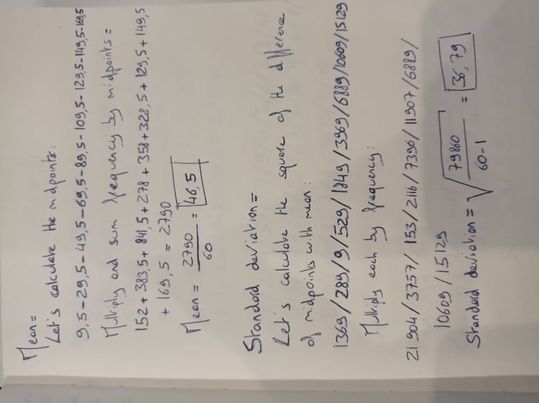 Mean=
Let's calculate the midpoints:
9,5-29,5-49,5-69,5-89,5-109,5-129,5-149,5-169,5
Multiply and sum frequency by midpoints =
152+383,5+841,5+278+358+328,5+129,5+149,5
+169,5 = 2790
Mean = 2790/60 = 46,5
Standard deviation=
Let's calculate the square of the difference
of midpoints with mean:
1369/289/9/529/1849/3969/6889/10609/15129
Multiply each by frequency:
21904/3757/153/2116/7396/11907/6889/
10609/15129
Standard deviation = √(79860/60-1) = 36,79